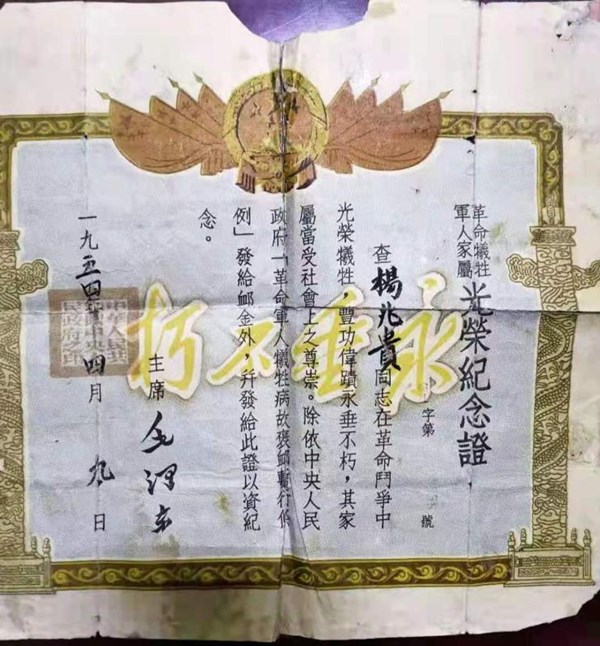 革命犧牲
軍人家屬
光榮紀念證
字第 號
查楊兆貴同志在革命鬥爭中
光榮犧牲，豐功偉蹟永垂不朽，其家
屬當受社會上之尊崇。除依中央人民
政府「革命軍人犧牲病故褒卹暫行條
例」發給卹金外，幷發給此證以資紀
念。
主席 毛澤东
一九五四年四月九日
永垂不朽